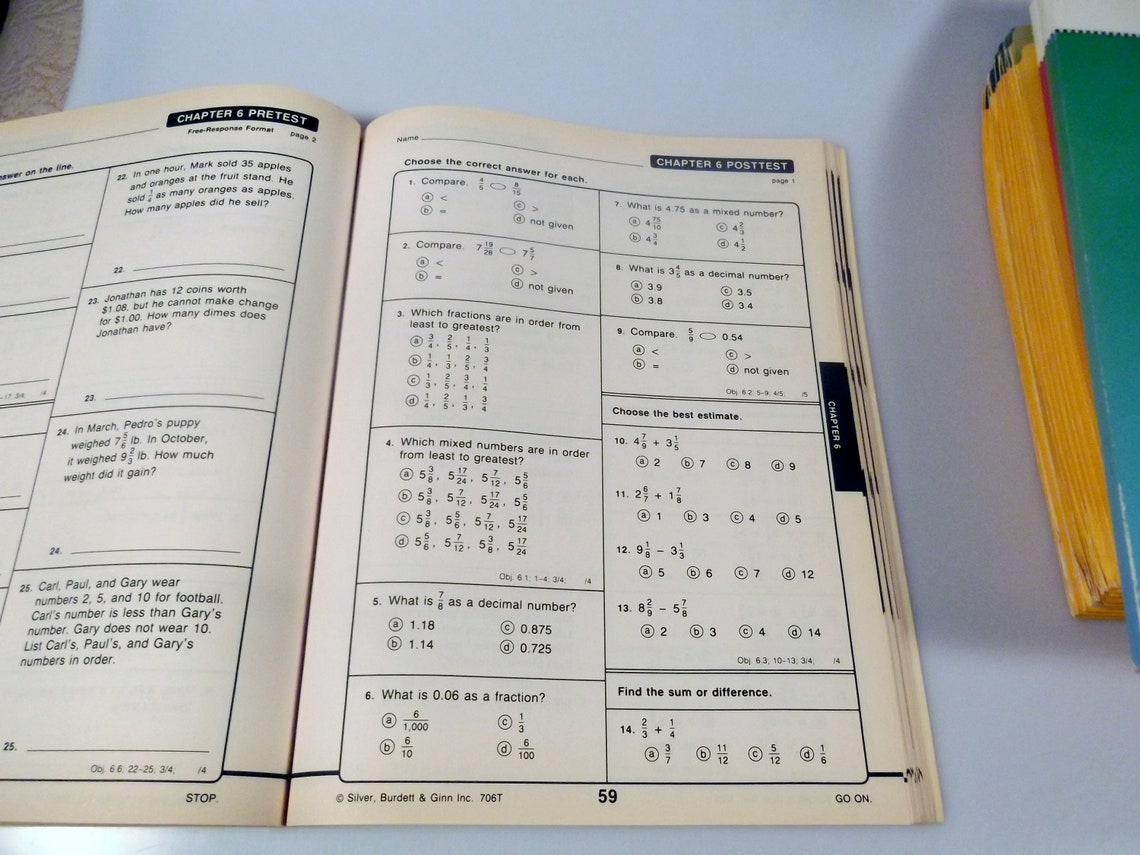 CHAPTER 6 PRETEST
Free-Response Format
page 2
answer on the line.
22. In one hour, Mark sold 35 apples
and oranges at the fruit stand. He
sold 1/4 as many oranges as apples.
How many apples did he sell?
22.
23. Jonathan has 12 coins worth
$1.08, but he cannot make change
for $1.00. How many dimes does
Jonathan have?
23.
24. In March, Pedro's puppy
weighed 7 5/6 lb. In October,
it weighed 9 2/3 lb. How much
weight did it gain?
24.
25. Carl, Paul, and Gary wear
numbers 2, 5, and 10 for football.
Carl's number is less than Gary's
number. Gary does not wear 10.
List Carl's, Paul's, and Gary's
numbers in order.
25.
Obj. 6.6; 22-25; 3/4; /4
STOP.
Name
CHAPTER 6 POSTTEST
page 1
Choose the correct answer for each.
1. Compare. 4/5 8/15
a <
c >
b =
d not given
2. Compare. 7 19/28 7 5/7
a <
c >
b =
d not given
3. Which fractions are in order from
least to greatest?
a 3/4, 2/5, 1/4, 1/3
b 1/4, 1/3, 2/5, 3/4
c 1/3, 2/5, 3/4, 1/4
d 1/4, 2/5, 1/3, 3/4
4. Which mixed numbers are in order
from least to greatest?
a 5 3/8, 5 17/24, 5 7/12, 5 5/6
b 5 3/8, 5 7/12, 5 17/24, 5 5/6
c 5 3/8, 5 5/6, 5 7/12, 5 17/24
d 5 5/6, 5 7/12, 5 3/8, 5 17/24
Obj. 6.1; 1-4; 3/4; /4
5. What is 7/8 as a decimal number?
a 1.18 c 0.875
b 1.14 d 0.725
6. What is 0.06 as a fraction?
a 6/1,000 c 1/3
b 6/10 d 6/100
7. What is 4.75 as a mixed number?
a 4 75/10 c 4 2/3
b 4 3/4 d 4 1/2
8. What is 3 4/5 as a decimal number?
a 3.9 c 3.5
b 3.8 d 3.4
9. Compare. 5/9 0.54
a < c >
b = d not given
Obj. 6.2; 5-9; 4/5; /5
Choose the best estimate.
10. 4 7/9 + 3 1/5
a 2 b 7 c 8 d 9
11. 2 6/7 + 1 7/8
a 1 b 3 c 4 d 5
12. 9 1/8 - 3 1/3
a 5 b 6 c 7 d 12
13. 8 2/9 - 5 7/8
a 2 b 3 c 4 d 14
Obj. 6.3; 10-13; 3/4; /4
Find the sum or difference.
14. 2/3 + 1/4
a 3/7 b 11/12 c 5/12 d 1/6
CHAPTER 6
© Silver, Burdett & Ginn Inc. 706T
59
GO ON.